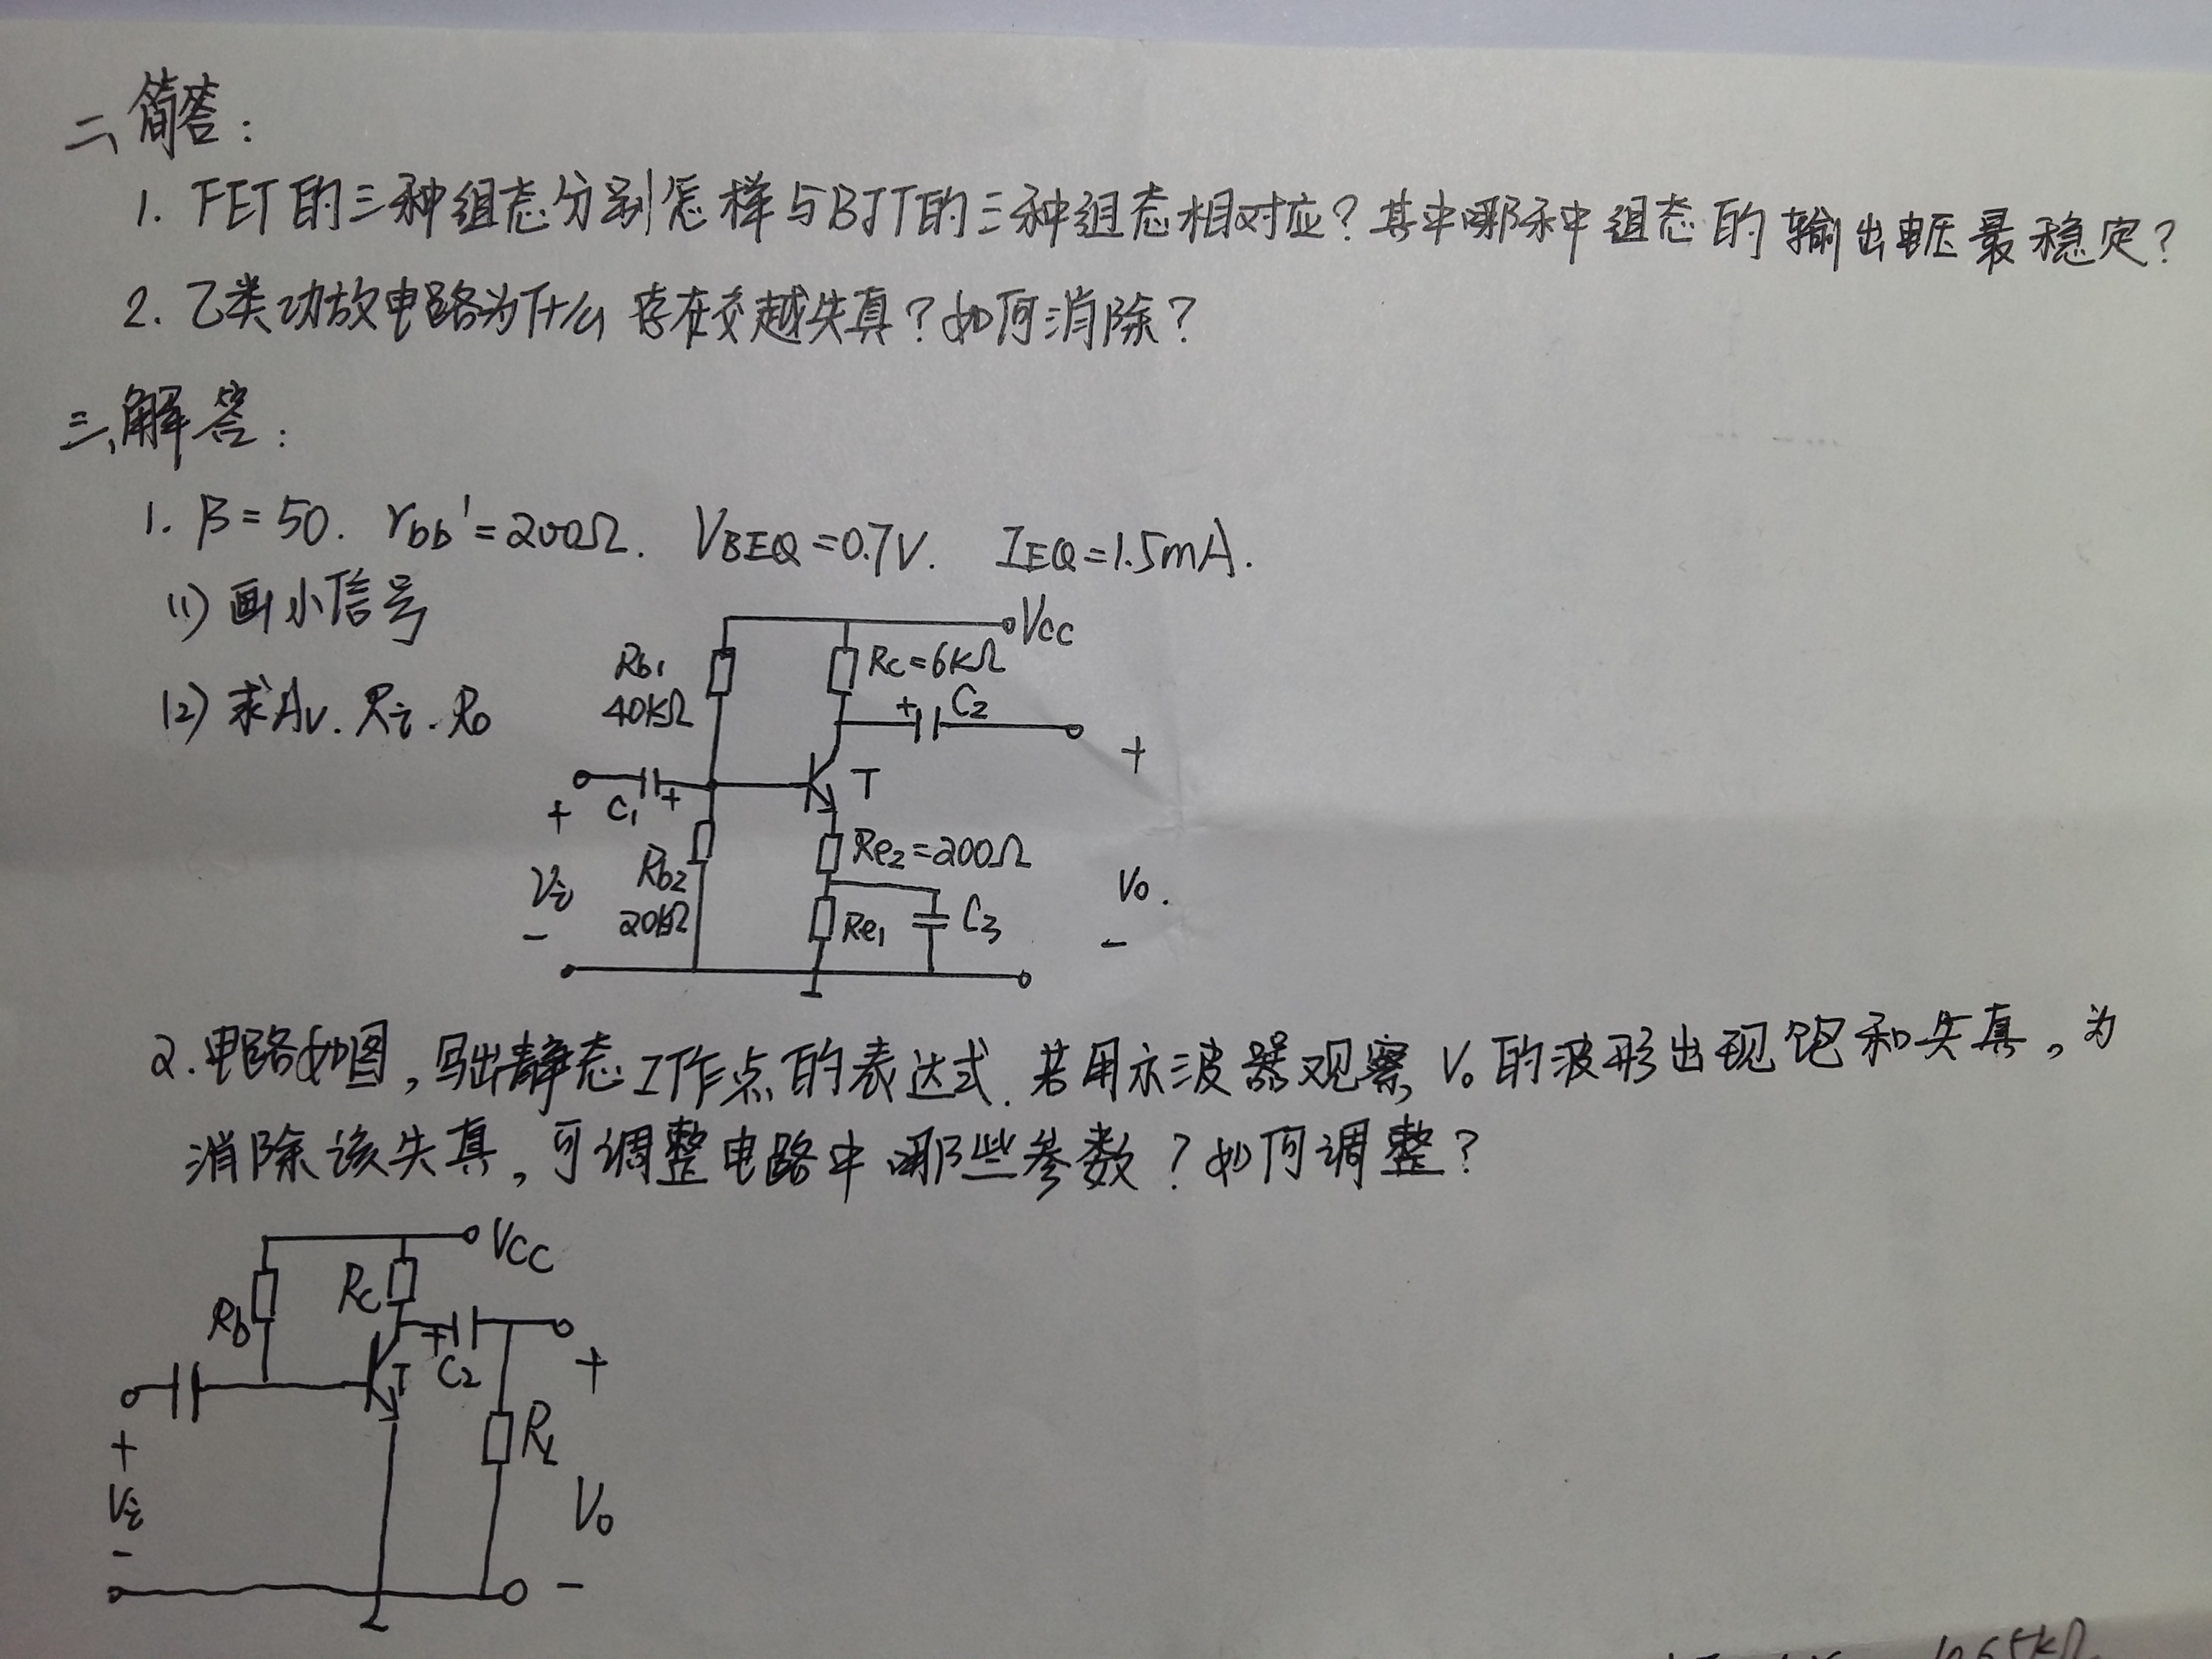 二、简答：
1. FET的三种组态分别怎样与BJT的三种组态相对应？其中哪种组态的输出电压最稳定？
2. 乙类功放电路为什么存在交越失真？如何消除？
三、解答：
1. β=50. rbb'=200Ω. VBEQ=0.7V. IEQ=1.5mA.
(1) 画小信号
(2) 求Av. Ri. Ro
Vcc
Rb1
40kΩ
Rc=6kΩ
+ C2
+
C1 +
T
+
Rb2
20kΩ
Re2=200Ω
Vi
Vo.
Re1
C3
-
-
2. 电路如图，写出静态工作点的表达式. 若用示波器观察 Vo 的波形出现饱和失真，为
消除该失真，可调整电路中哪些参数？如何调整？
VCC
Rb
Rc
+
C2
T
+
+
RL
Vi
Vo
-
-